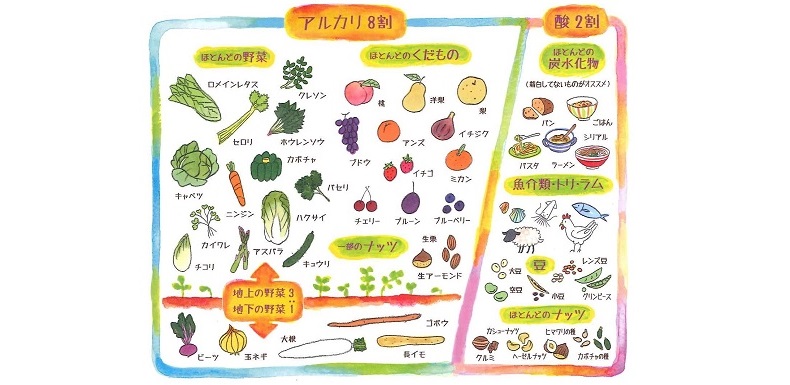 アルカリ8割
ほとんどの野菜
ロメインレタス
クレソン
セロリ
ホウレンソウ
キャベツ
ニンジン
カボチャ
パセリ
カイワレ
アスパラ
ハクサイ
チコリ
キュウリ
ほとんどのくだもの
桃
洋梨
梨
ブドウ
アンズ
イチジク
イチゴ
ミカン
チェリー
プルーン
ブルーベリー
一部のナッツ
生栗
生アーモンド
地上の野菜3
:
地下の野菜1
ビーツ
玉ネギ
大根
ゴボウ
長イモ
酸2割
ほとんどの
炭水化物
(精白してないものがオススメ)
パン
ごはん
パスタ
ラーメン
シリアル
魚介類・トリ・ラム
豆
大豆
レンズ豆
空豆
小豆
グリンピース
ほとんどのナッツ
カシューナッツ
ヒマワリの種
クルミ
ヘーゼルナッツ
栗
カボチャの種